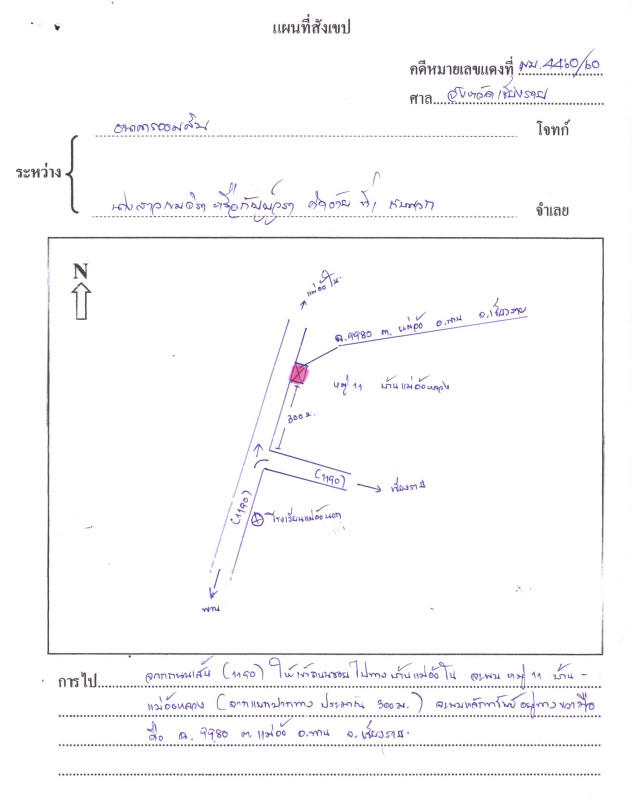 แผนที่สังเขป
คดีหมายเลขแดงที่ ผบ.4460/60
ศาล จังหวัดเชียงราย
ธนาคารออมสิน โจทก์
ระหว่าง
นางสาว หรือกัญญ์วรา ที่1 กับพวก จำเลย
N
แม่อ้อใน
ฉ.9980 ต.แม่อ้อ อ.พาน จ.เชียงราย
หมู่ 11 บ้านแม่อ้อหลวง
300 ม.
(1190)
เชียงราย
(1190)
โรงเรียนแม่อ้อนอก
พาน
การไป จากถนนเส้น (1190) ให้เข้าถนนซอยไปทางบ้านแม่อ้อใน จะพบ หมู่ 11 บ้าน-
แม่อ้อหลวง (จากแยกปากทาง ประมาณ 300 ม.) จะพบหลักทรัพย์อยู่ทางขวามือ
คือ ฉ.9980 ต.แม่อ้อ อ.พาน จ.เชียงราย